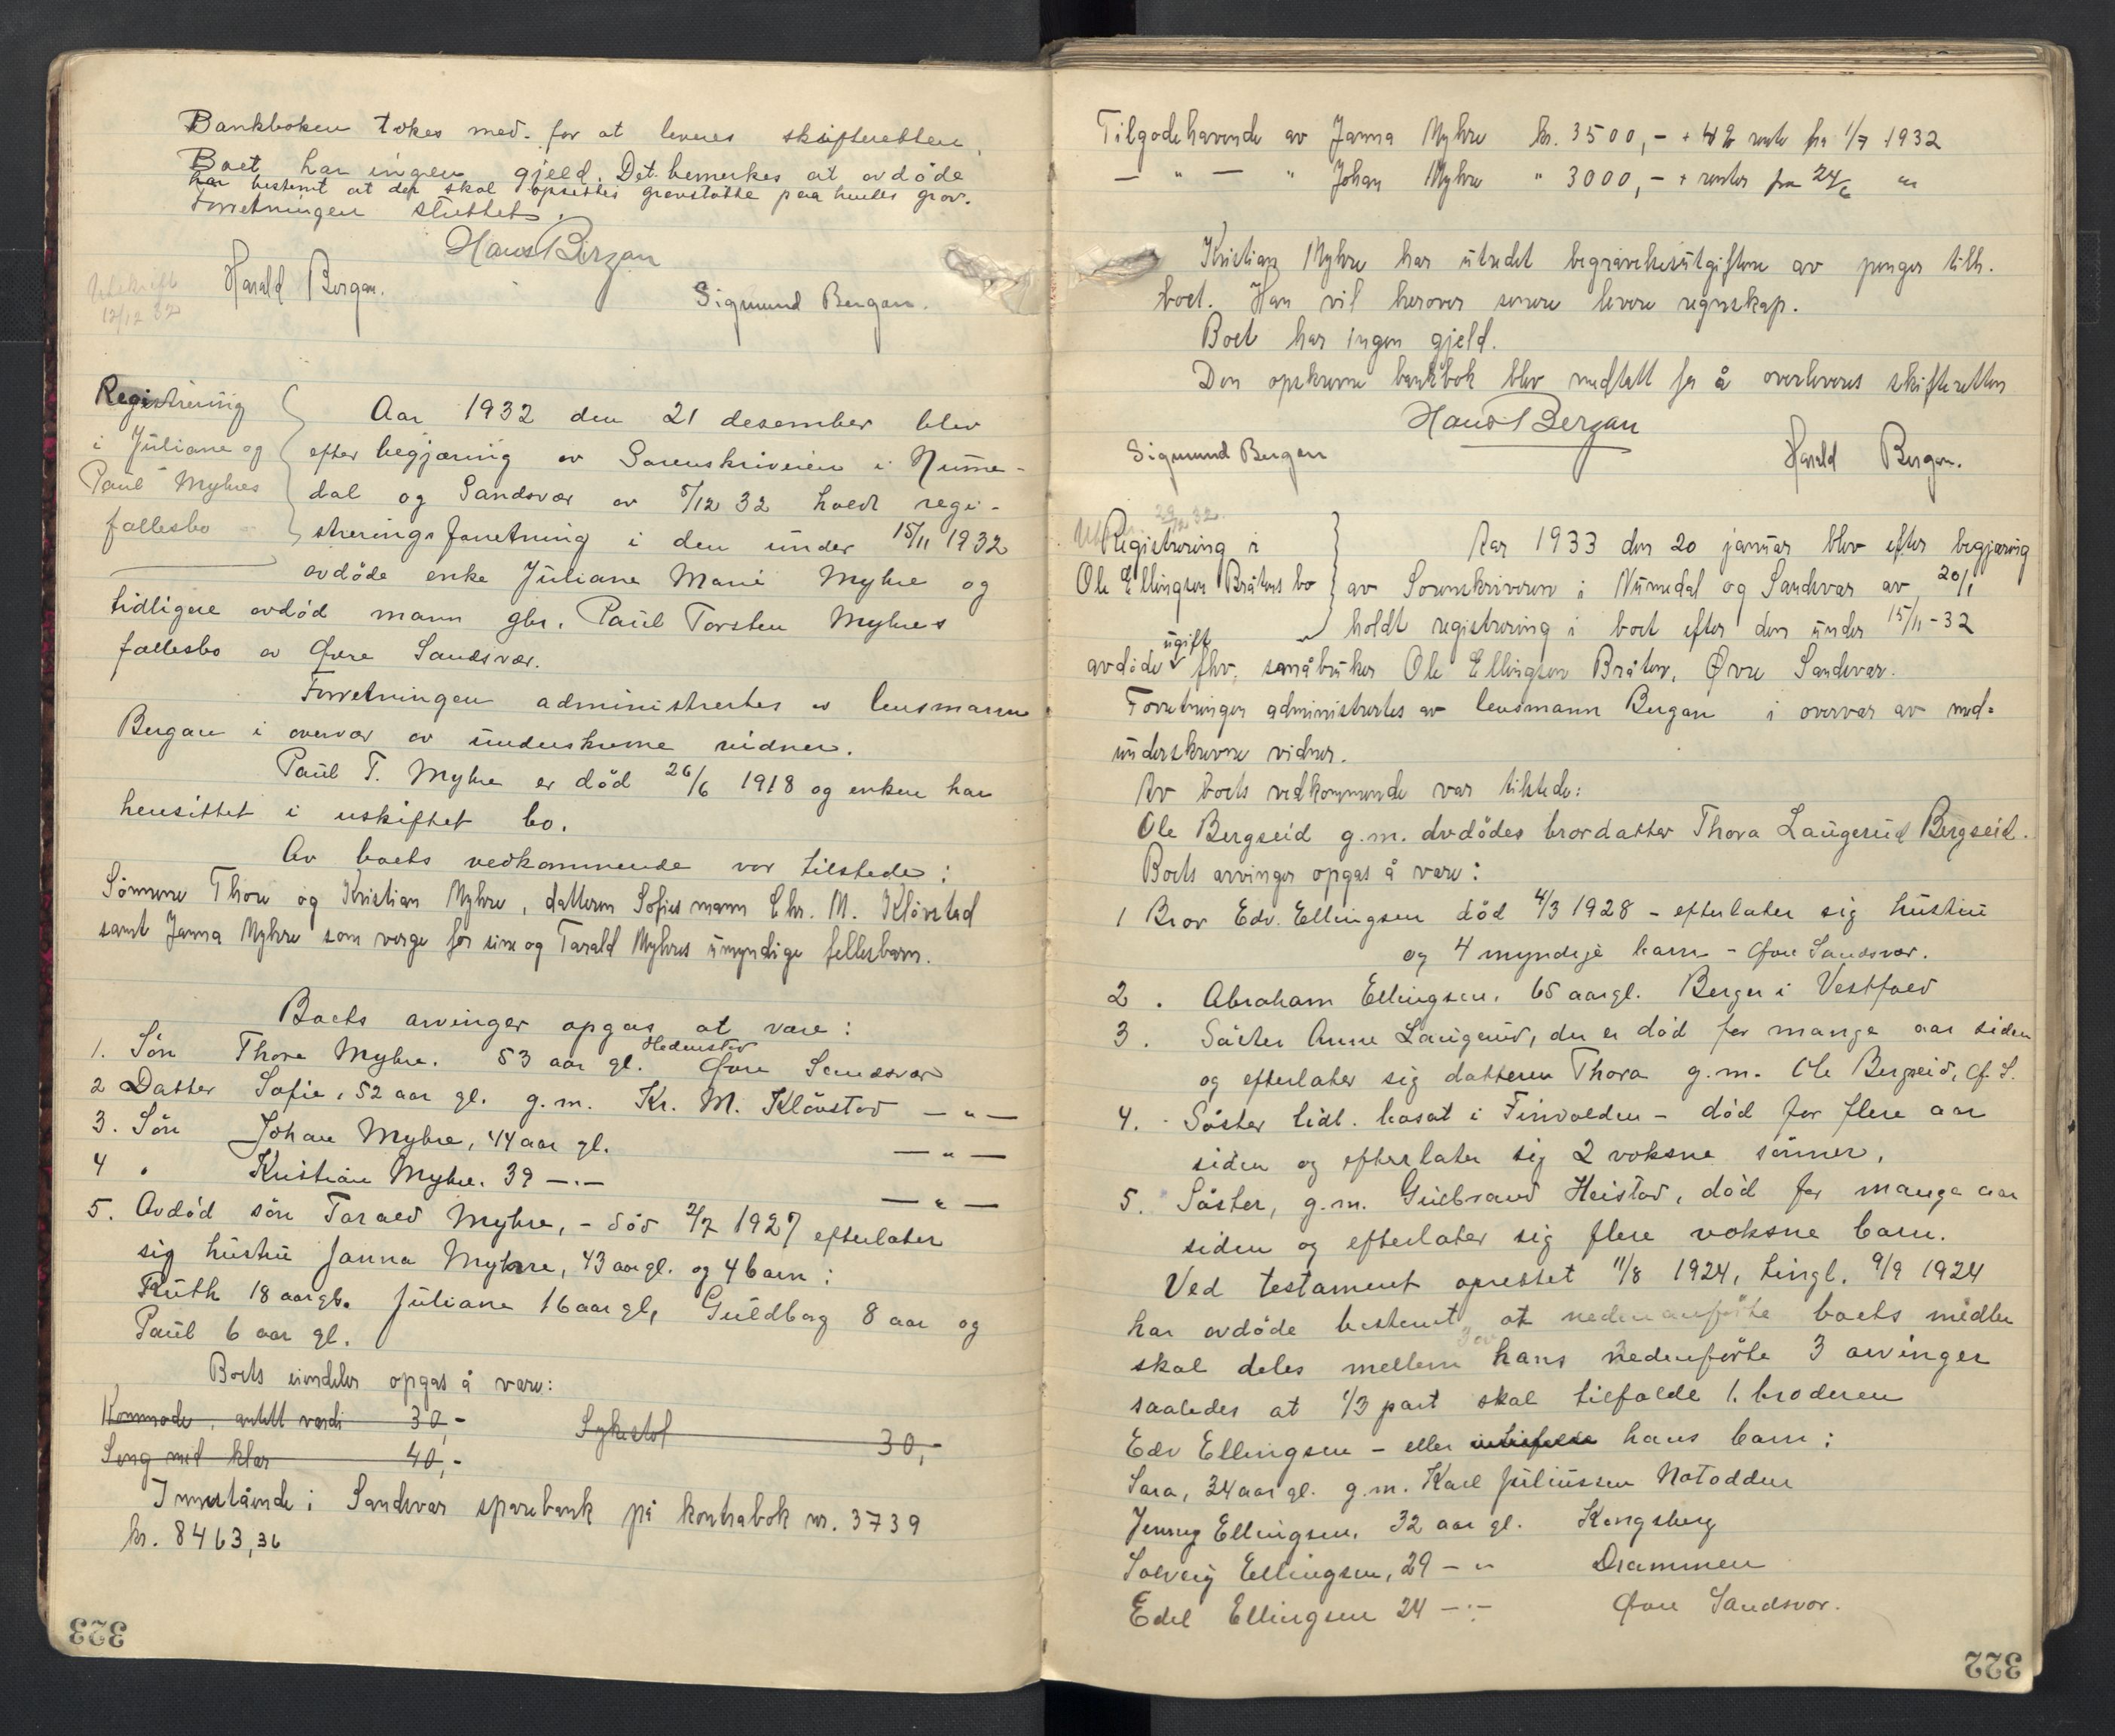 Bankboken tokes med. for at leveres skifteretten.
Boet har ingen gjeld. Det bemerkes at avdöde
har bestemt at der skal opsettes gravstøtte paa hendes grav.
Forretningen sluttet.
Hans Bergan
Harald Bergan.
Sigmund Bergan.
Utskrift
12/12 32
Registrering
i Juliane og
Paul Myhres
fællesbo
Aar 1932 den 21 desember blev
efter begjæring av Sorenskriveren i Nume-
dal og Sandsvær av 5/12 32 holdt regi-
strerings forretning i den under 15/11 1932
avdöde enke Juliane Marie Myhre og
tidligere avdöd mann gbr. Paul Torsten Myhres
fællesbo av Øvre Sandsvær.
Forretningen administrertes av lensmann
Bergan i overvær av underskrevne vidner.
Paul T. Myhre er död 26/6 1918 og enken har
hensittet i uskiftet bo.
Av boets vedkommende var tilstede:
Sönnene Thore og Kristian Myhre, datteren Sofies mann Chr. M. Klövstad
samt Janna Myhre som verge for sine og Tarald Myhres umyndige fellesbarn.
Boets arvinger opgas at være:
1. Sön Thore Myhre. 53 aar gl. Hedenstad Øvre Sandsvær
2 Datter Sofie, 52 aar gl. g.m. Kr. M. Klövstad — " —
3. Sön Johan Myhre, 44 aar gl. — " —
4 " Kristian Myhre. 39 — " — — " —
5. Avdöd sön Tarald Myhre, - död 2/7 1927 efterlater
sig hustru Janna Myhre, 43 aar gl. og 4 barn:
Ruth 18 aar gl. Juliane 16 aar gl, Guldborg 8 aar og
Paul 6 aar gl.
Boets eiendeler opgas å være:
Kommode, antatt verdi 30,- Sykestol 30,-
Seng med klær 40,-
Innestående i Sandsvær sparebank på kontrabok nr. 3739
kr. 8463,36
323
Tilgodehavende av Janna Myhre kr. 3500,- + 4 % rente fra 1/7 1932
— " — " Johan Myhre " 3000,- + renter fra 24/6 "
Kristian Myhre har utredet begravelsesutgiftene av penger tilh.
boet. Han vil herover senere levere regnskap.
Boet har ingen gjeld.
Den opskrevne bankbok blev medtatt for å overleveres skifteretten
Hans Bergan
Sigmund Bergan
Harald Bergan.
29/12 32.
Registrering i
Ole Ellingsen Bråtens bo
Aar 1933 den 20 januar blev efter begjæring
av Sorenskriveren i Numedal og Sandsvær av 20/1
holdt registrering i boet efter den under 15/11-32
avdöde ugift fhv. småbruker Ole Ellingsen Bråten, Øvre Sandsvær.
Forretningen administrertes av lensmann Bergan i overvær av med-
underskrevne vidner.
Av boets vedkommende var tilstede:
Ole Bergseid g.m. avdödes brordatter Thora Laugerud Bergseid.
Boets arvinger opgas å være:
1 Bror Edv. Ellingsen död 4/3 1928 - efterlater sig hustru
og 4 myndige barn - Øvre Sandsvær.
2 . Abraham Ellingsen. 65 aar gl. Berger i Vestfold
3 . Söster Anne Laugerud, der er död for mange aar siden
og efterlater sig datteren Thora g.m. Ole Bergseid, Ø. S.
4. Söster tidl. bosat i Finvolden - död for flere aar
siden og efterlater sig 2 voksne sönner.
5. Söster, g.m. Gulbrand Heistad, död for mange aar
siden og efterlater sig flere voksne barn.
Ved testament oprettet 11/8 1924, tingl. 9/9 1924
har avdöde bestemt at nedenanförte boets midler
skal deles mellem hans nedenførte 3 arvinger
saaledes at 1/3 part skal tilfalde 1. broderen
Edv Ellingsen - eller hans barn:
Sara, 34 aar gl. g.m. Karl Juliussen Notodden
Jenny Ellingsen, 32 aar gl. Kongsberg
Solveig Ellingsen, 29 — " Drammen
Edel Ellingsen 24 — " — Øvre Sandsvær.
322